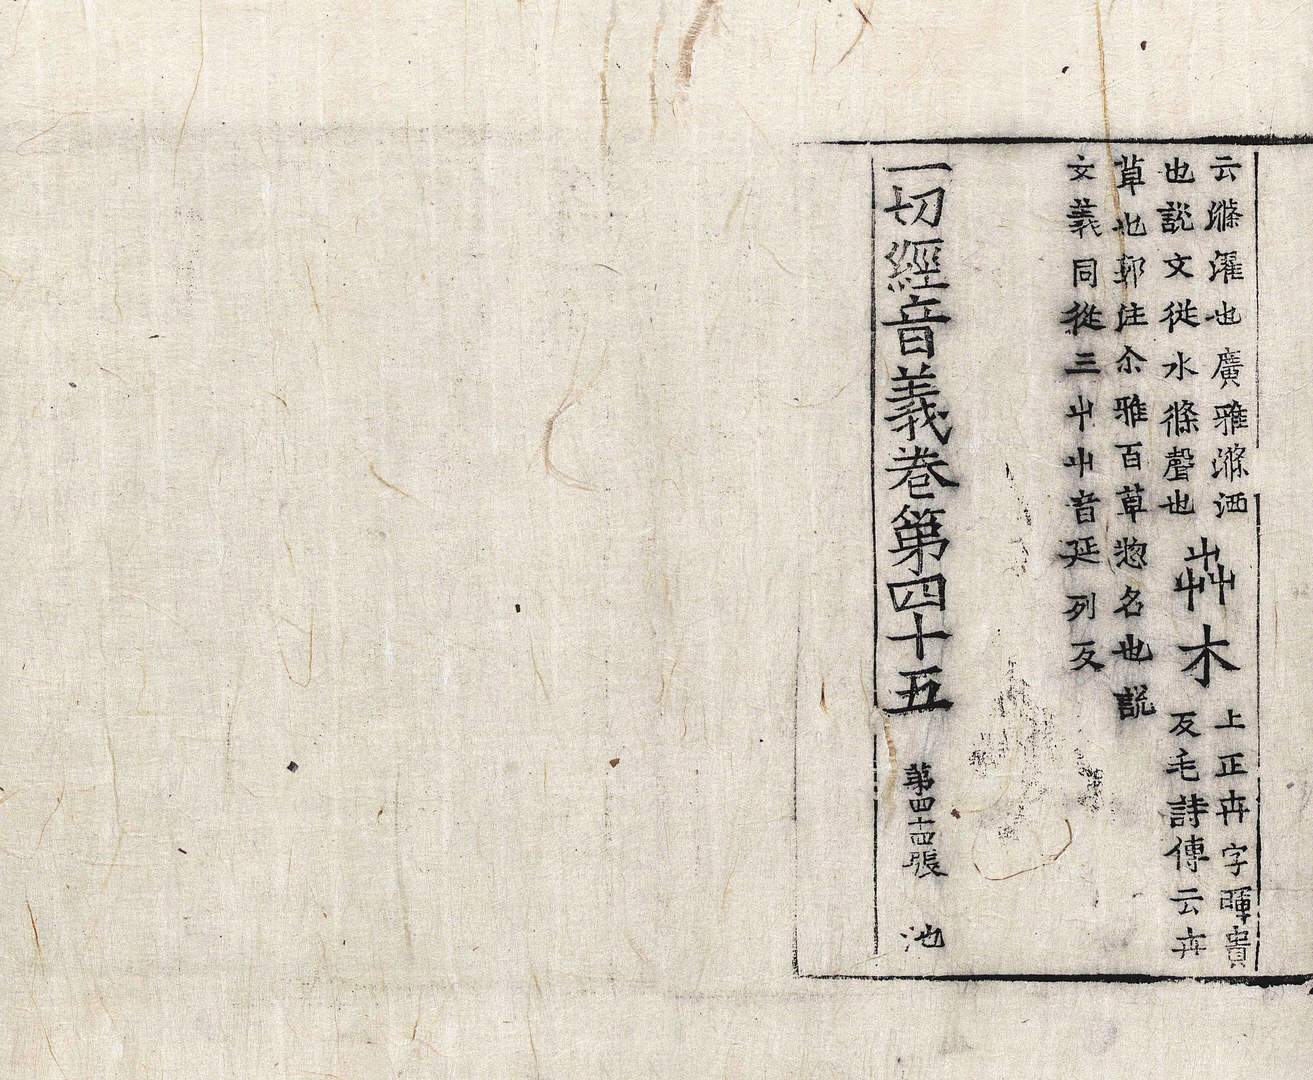 云滌濯也廣雅滌洒
也說文從水條聲也
芔木
上正卉字暉貴
反毛詩傳云卉
草也郭注尒雅百草惣名也說
文義同從三屮屮音延列反
一切經音義卷第四十五 第四十四張 池